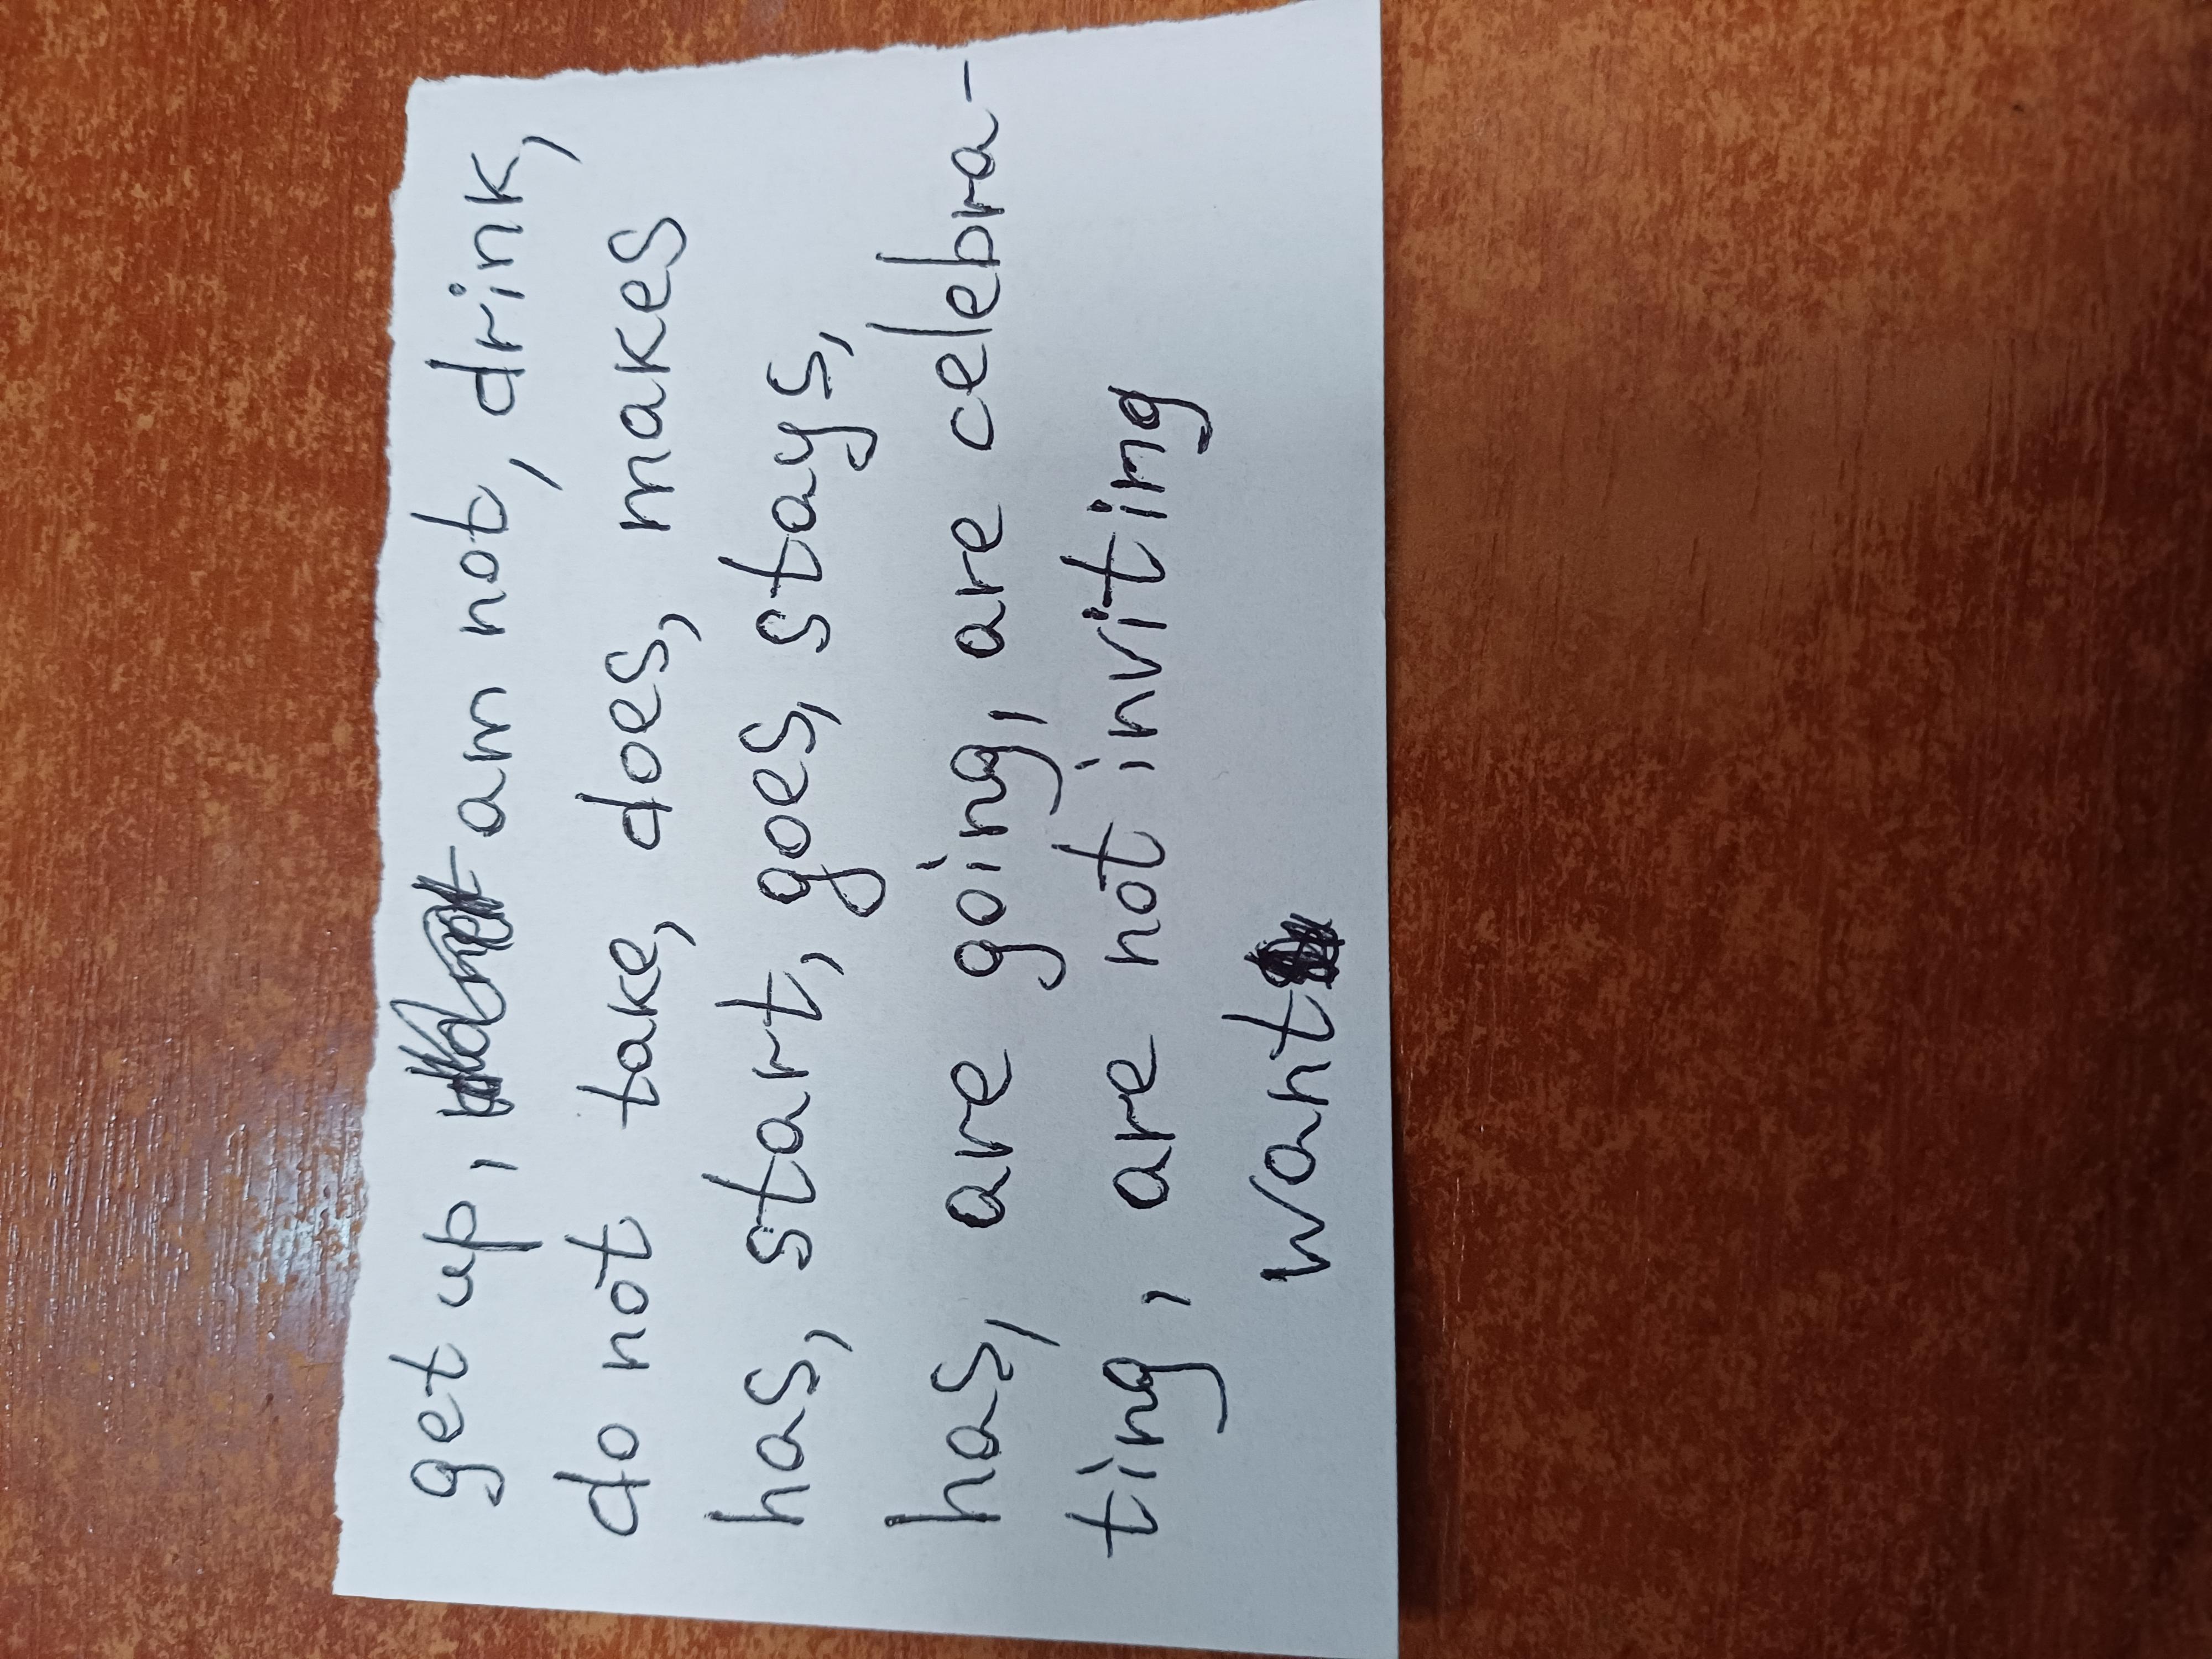 get up, am not, drink,
do not take, does, makes
has, start, goes, stays,
has, are going, are celebra-
ting, are not inviting
want